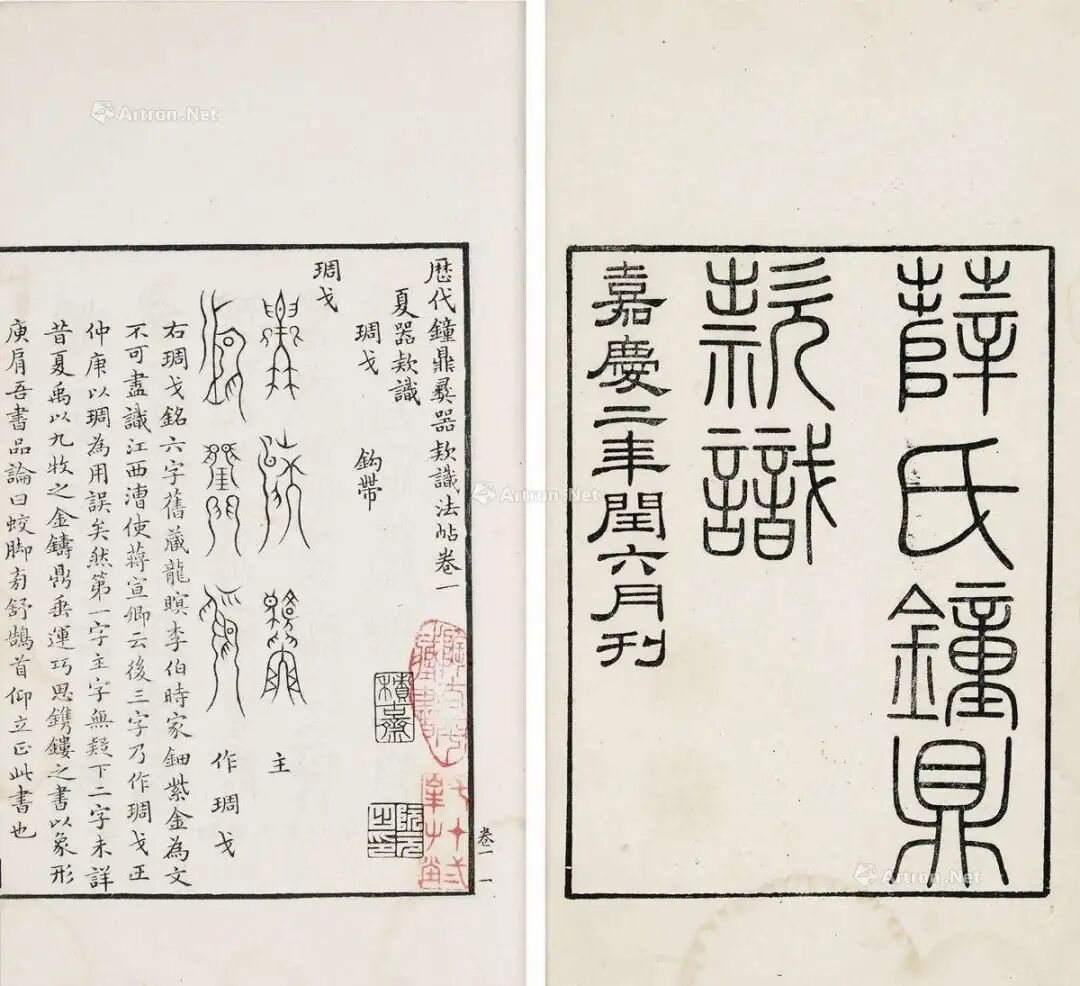 薛氏鐘鼎
款識
嘉慶二年閏六月刊
歷代鐘鼎彝器款識法帖卷一
夏器款識
琱戈　鈎帶
琱戈
主
作琱戈
右琱戈銘六字舊藏龍瞑李伯時家鈿紫金為文
不可盡識江西漕使蔣宣卿云後三字乃作琱戈王
仲庚以琱為用誤矣然第一字主字無疑下二字未詳
昔夏禹以九牧之金鑄鼎垂運巧思鐫鏤之書以象形
庾肩吾書品論曰蛟脚旁舒鵠首仰立正此書也
積古齋
阮元之印
卷一 一
Artron.Net
Artron.Net
Artron.Net